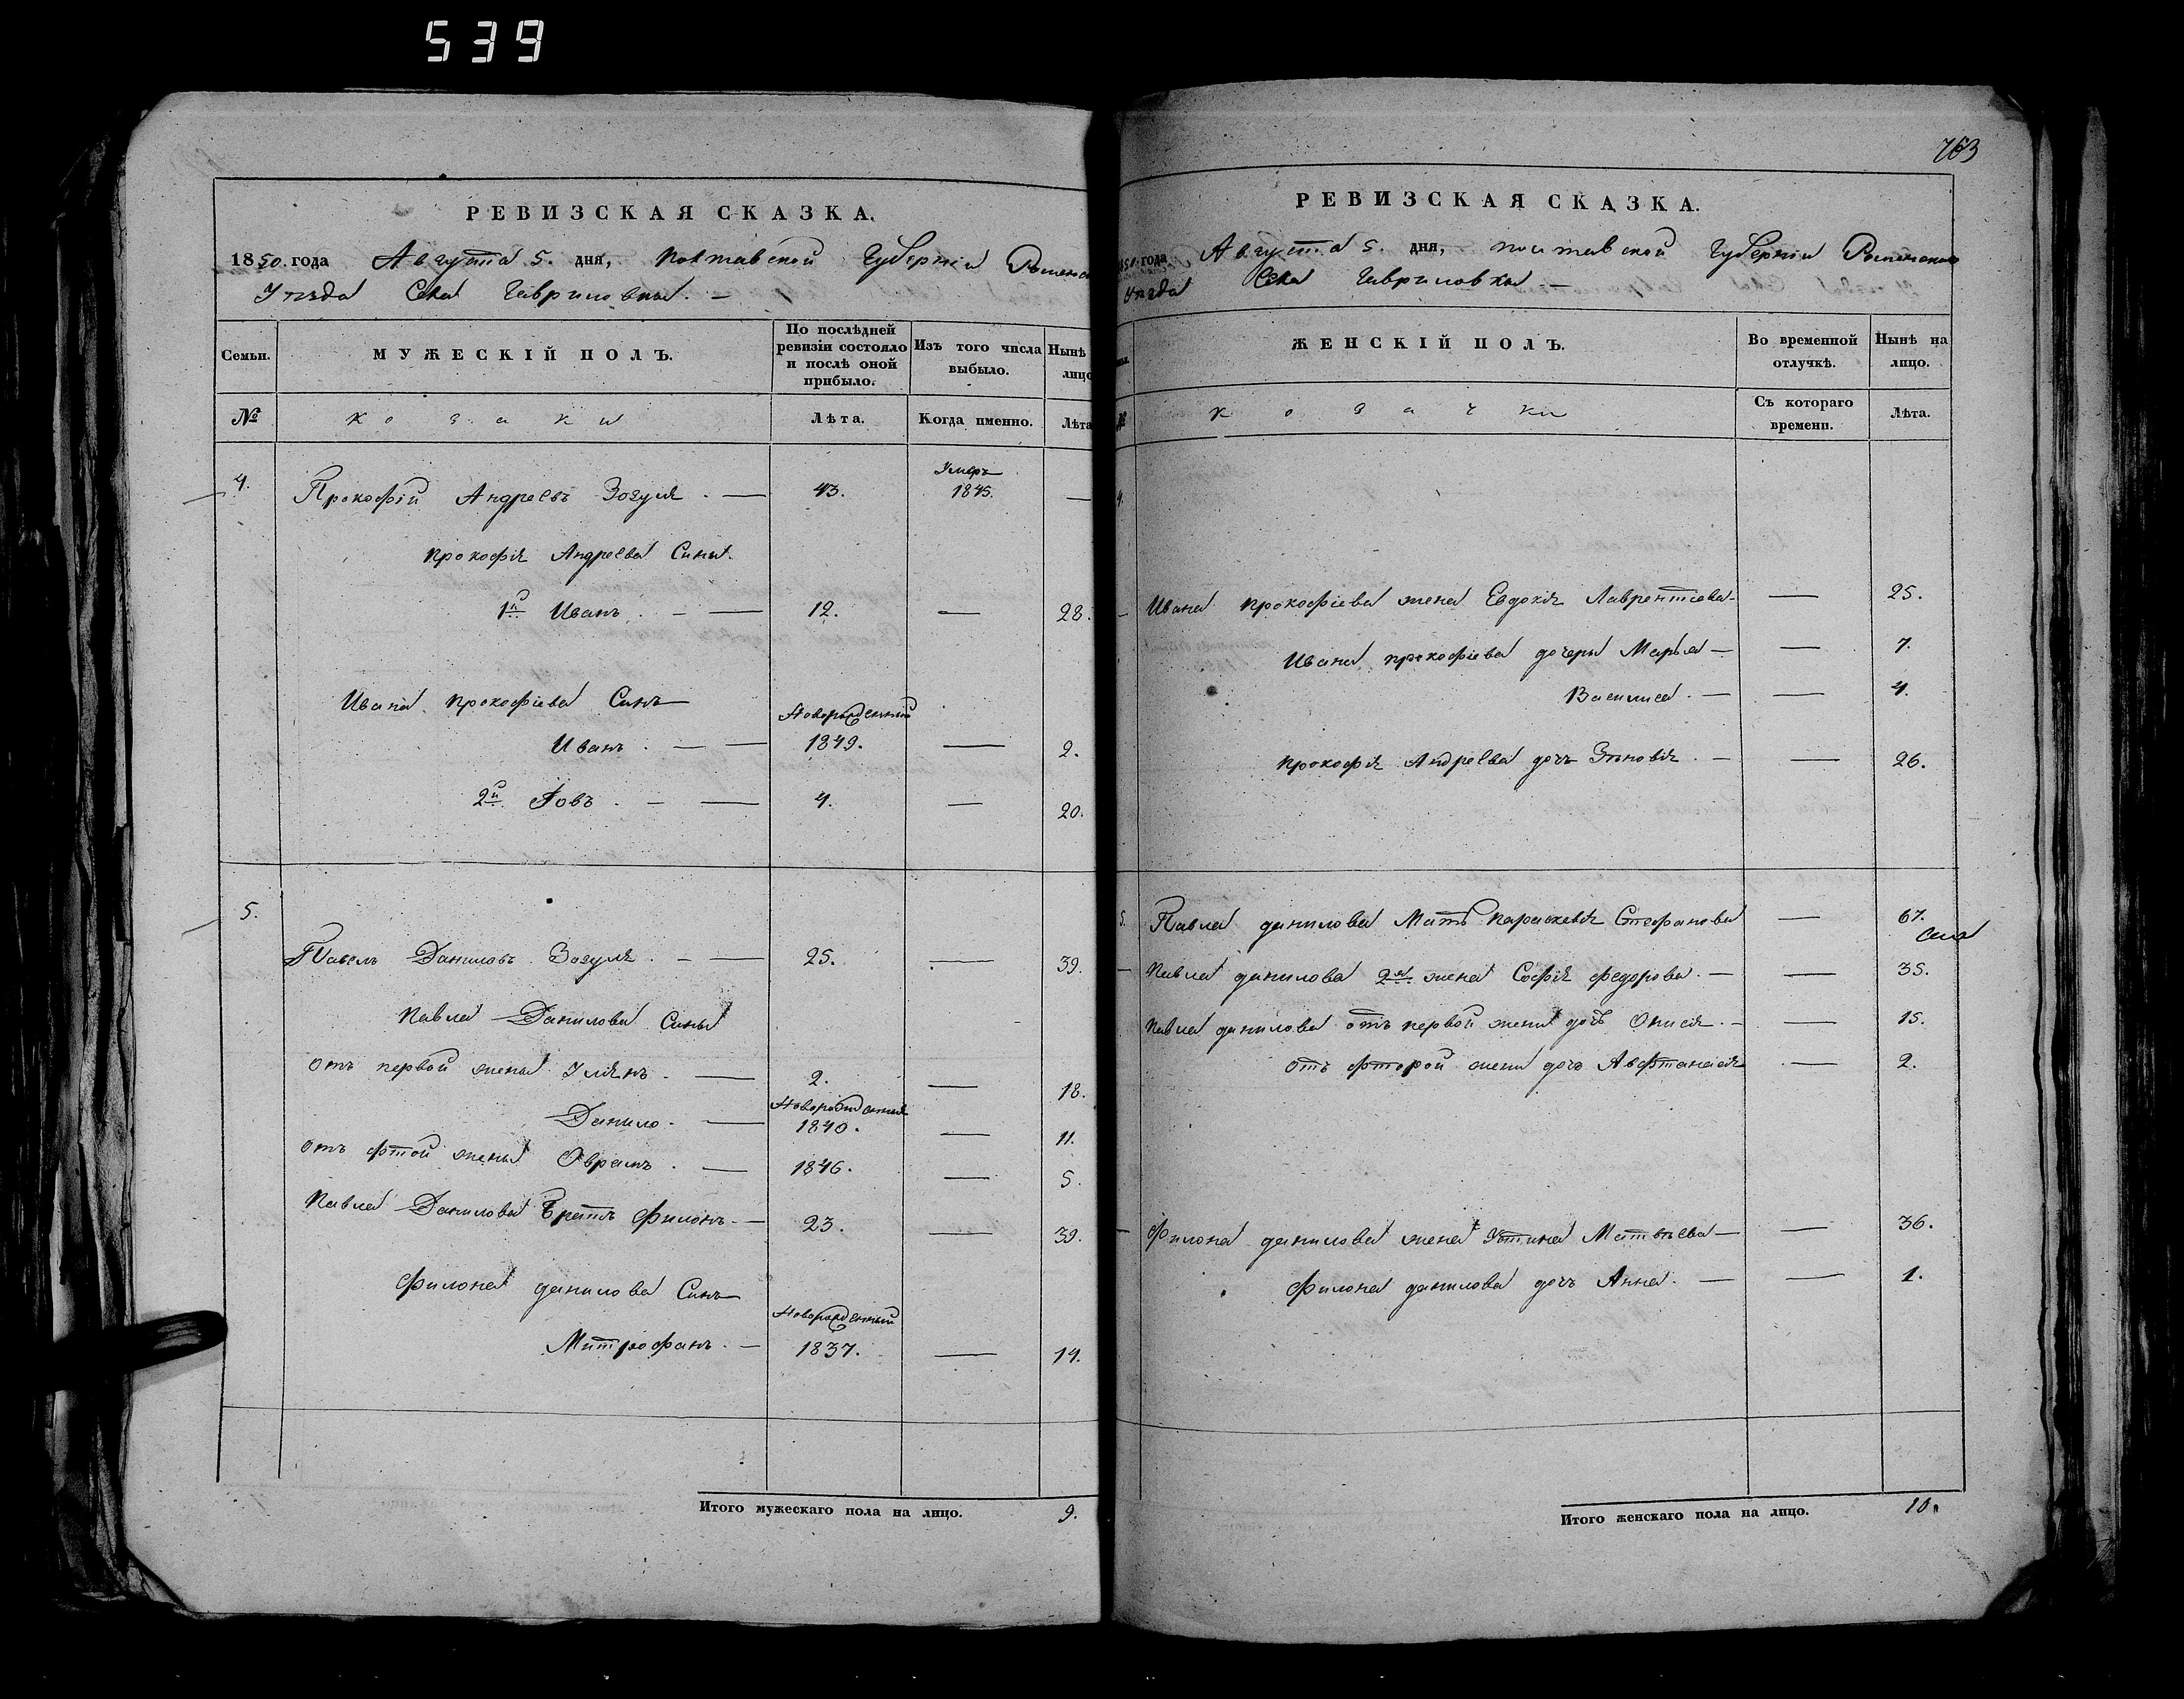 539
РЕВИЗСКАЯ СКАЗКА.
1850. года Августа 5. дня, Полтавской Губерніи Роменск
Уезда Села Гавриловки. –
Семьи.
МУЖЕСКІЙ ПОЛЪ.
По послѣдней ревизіи состояло и послѣ оной прибыло.
Изъ того числа выбыло.
Нынѣ лицо
№
козаки
Лѣта.
Когда именно.
Лѣта
4. Прокофій Андреевъ Зозуля . — 43. Умеръ 1845. —
Прокофія Андреева Сины.
1й Иванъ . – — 12. — 28.
Ивана Прокофіева Синъ
Иванъ . — — Новорожденный 1849. — 2.
2й Іовъ . – — 4. — 20.
5.
Павелъ Даниловъ Зозуля . – — 25. — 39.
Павла Данилова Сины
отъ первой жены Улянъ . — 2. — 18.
Данило . — Новорожденныя 1840. — 11.
отъ фтой жены Оврамъ . — 1846. — 5.
Павла Данилова Братъ Филонъ — 23. — 39.
Филона данилова Синъ
Митрофанъ . — Новорожденный 1837. — 14.
Итого мужескаго пола на лицо. 9.
763
РЕВИЗСКАЯ СКАЗКА.
1850. года Августа 5. дня, Полтавской Губерніи Роменского
Уезда Села Гавриловки —
ЖЕНСКІЙ ПОЛЪ.
Во временной отлучкѣ.
Нынѣ на лицо.
№
козачки
Съ котораго времени.
Лѣта.
4.
Ивана Прокофіева жена Евдокія Лаврентіева — — 25.
Ивана Прокофіева дочеры Марья — — 7.
Василиса . — — 4.
Прокофія Андреева дочъ Зѣновія . – — 26.
5. Павла данилова Мать Параскевія Стефанова — 67.
Павла данилова 2я жена Софія федорова . — — 35.
Павла данилова отъ первой жены дочъ Онисія . – — 15.
отъ фторой жени дочъ Авфтанасія — 2.
Филона данилова жена Устина Матвѣева — — 36.
Филона данилова дочъ Анна . — — 1.
Итого женскаго пола на лицо. 10.